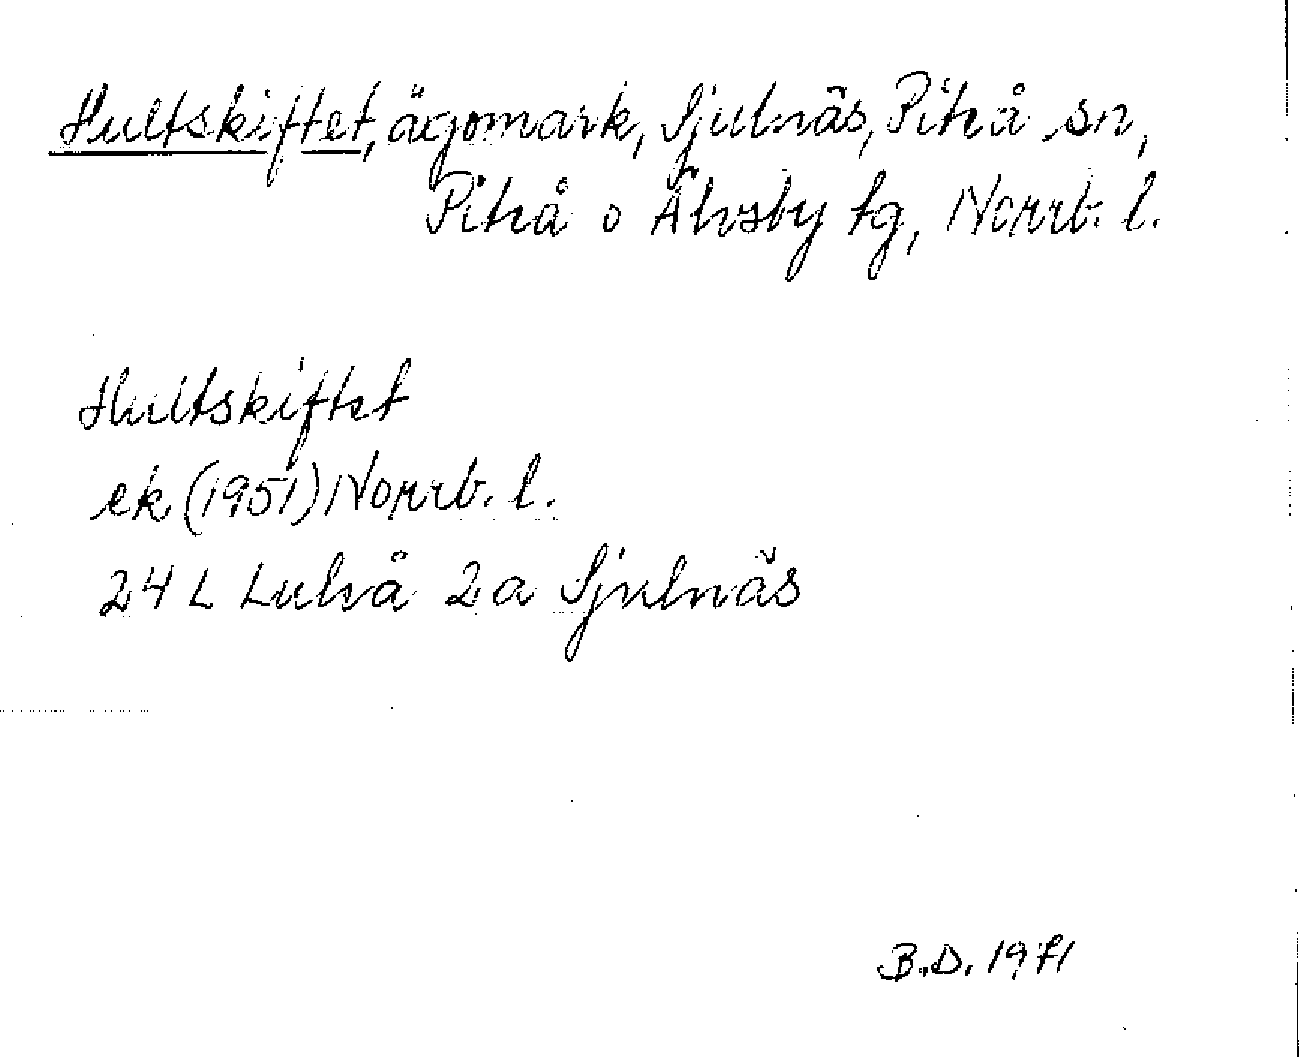 Hultskiftet, ägomark, Sjulnäs, Piteå sn,
Piteå o Älvsby tg, Norrb. l.
Hultskiftet
ek (1951) Norrb. l.
24 L Luleå 2a Sjulnäs
B.D. 1971